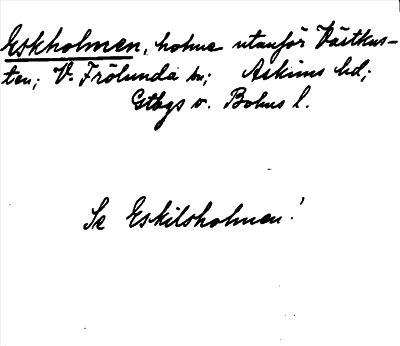 Eskholmen, holme utanför Västkus-
ten; V. Frölunda sn; Askims hd;
Gtbgs o. Bohus l.
Se Eskilsholmen!